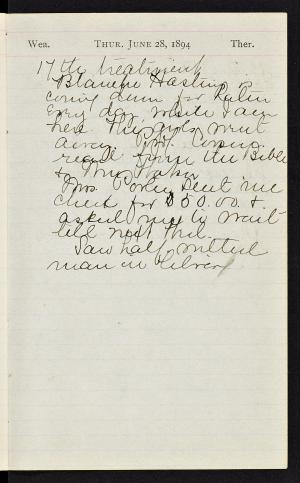 Wea. THUR. JUNE 28, 1894 Ther.
17th treatment
Blanche Hastings is
coming down for Katie
Every day while I am
here. The girls went
away.
read from the Bible
to Mrs. Baker
Mrs. sent me
check for $50.00. &
asked me to wait
till next
Saw half witted
man in